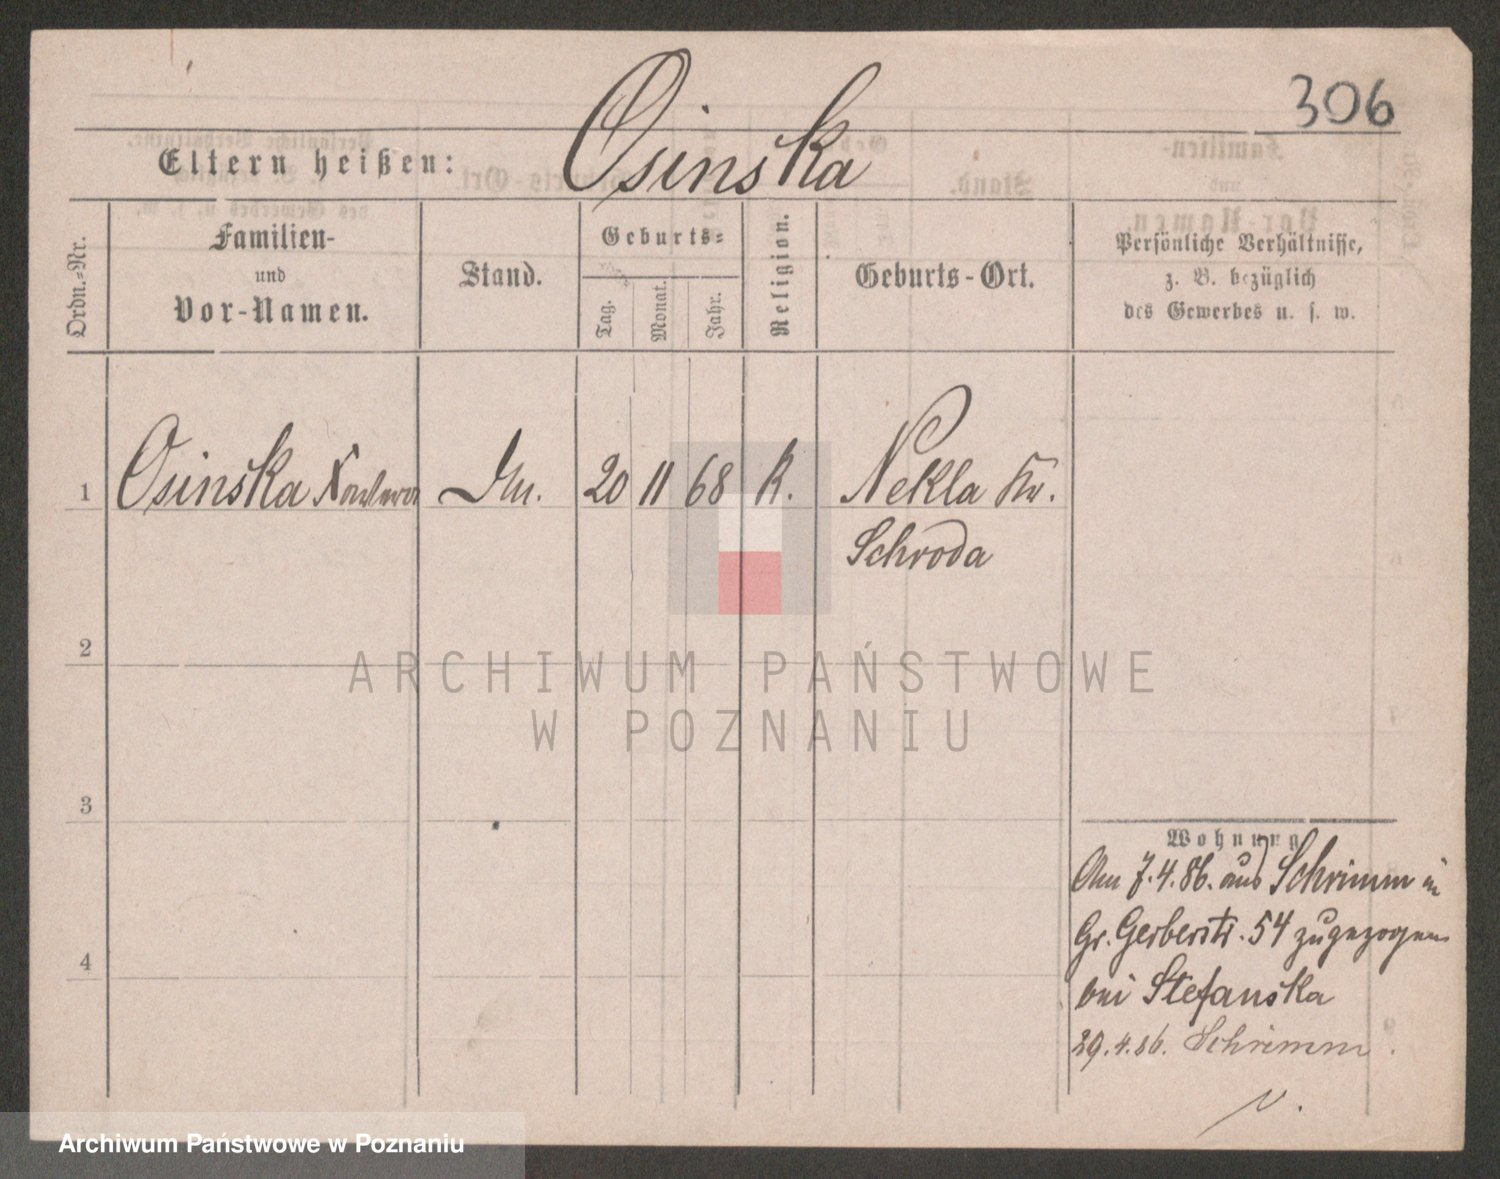 306
Osinska
Eltern heißen:
Ordn.-Nr.
Familien-
und
Vor-Namen.
Stand.
Geburts-
Tag.
Monat.
Jahr.
Religion.
Geburts-Ort.
Persönliche Verhältnisse,
z. B. bezüglich
des Gewerbes u. s. w.
1 Osinska 20 11 68 K. Nekla Kr.
Schroda
2
3
4
ARCHIWUM PAŃSTWOWE
W POZNANIU
Wohnung
Am 7.4.86. aus Schrimm in
Gr. Gerberstr. 54 zugezogen
bei Stefanska
29.4.86. Schrimm.
v.
Archiwum Państwowe w Poznaniu